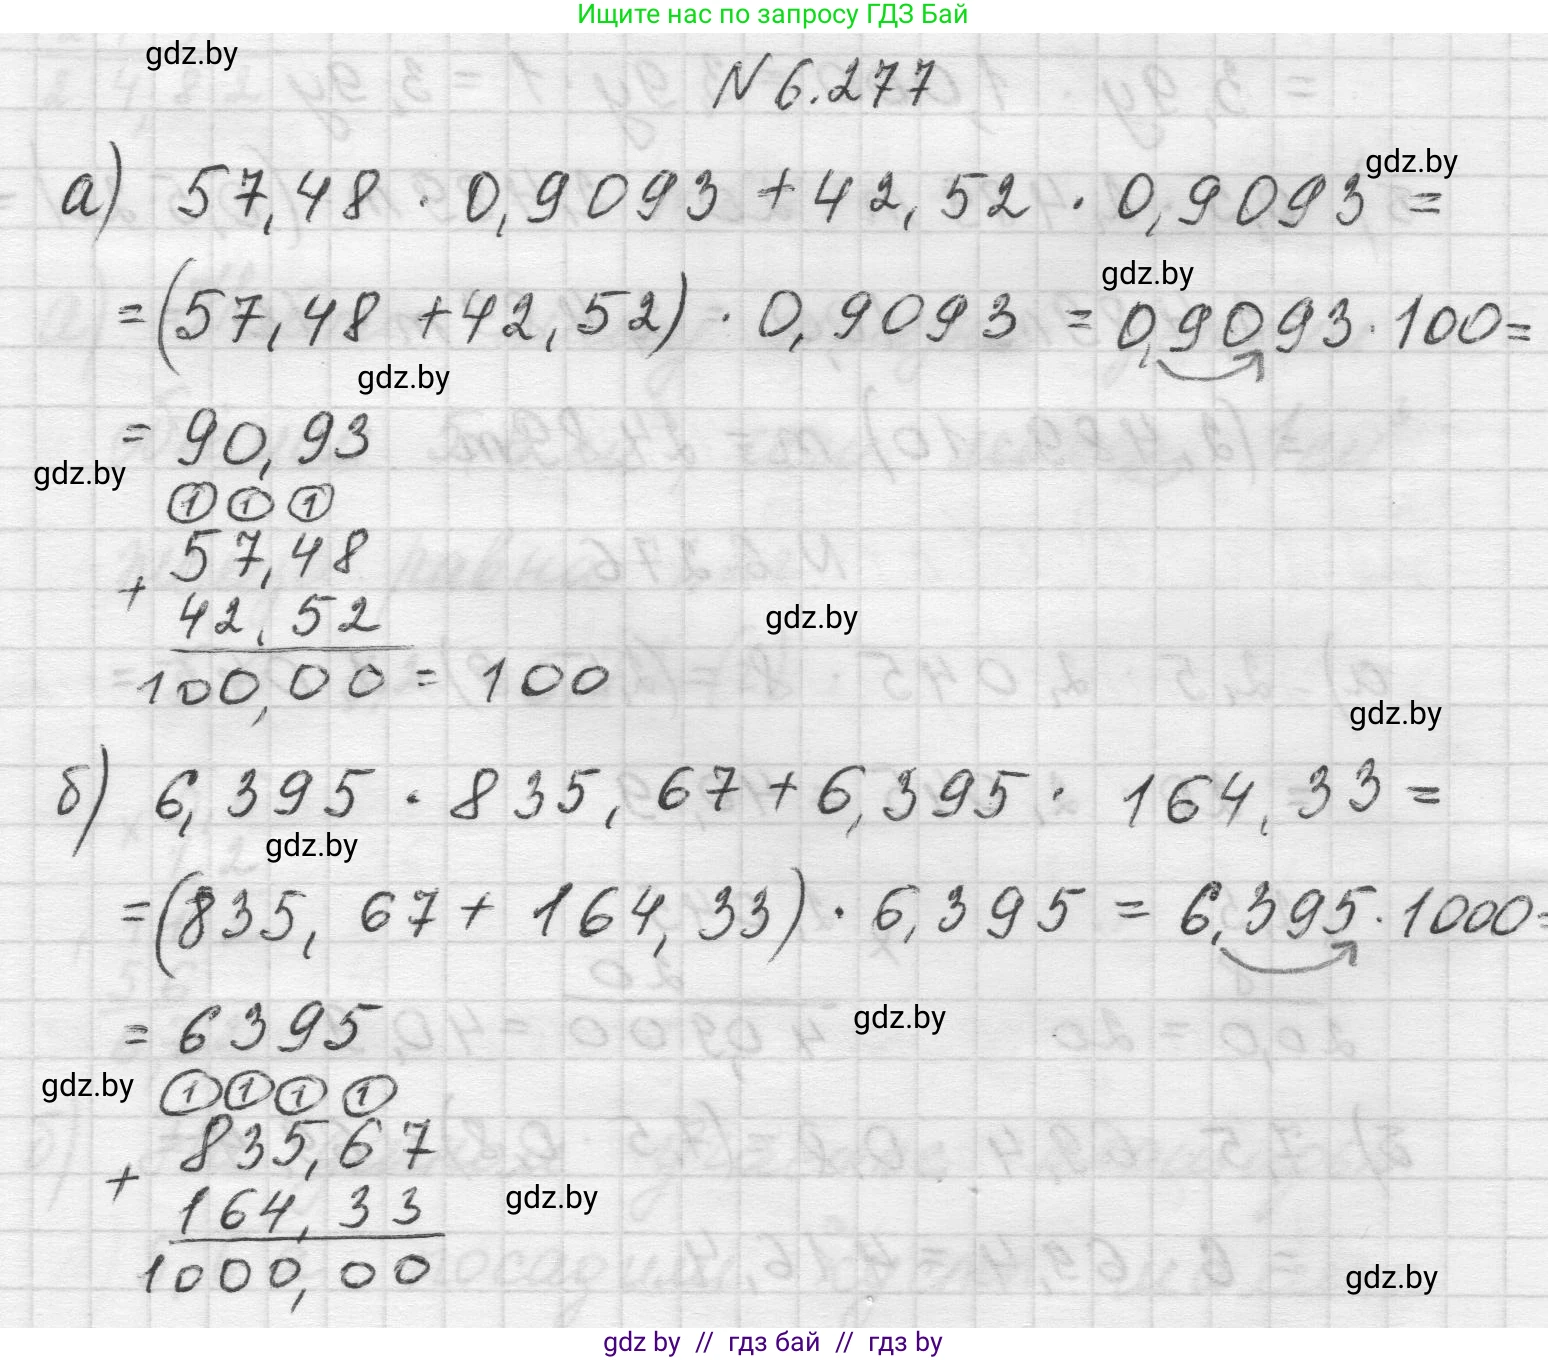 Ищите нас по запросу ГДЗ Бай
gdz.by
N 6.277
gdz.by
а) 57,48 · 0,9093 + 42,52 · 0,9093 =
gdz.by
= (57,48 + 42,52) · 0,9093 = 0,9093 · 100 =
gdz.by
= 90,93
gdz.by
1 1 1
57,48
+
42,52
gdz.by
100,00 = 100
gdz.by
б) 6,395 · 835,67 + 6,395 · 164,33 =
gdz.by
= (835,67 + 164,33) · 6,395 = 6,395 · 1000 =
gdz.by
= 6395
gdz.by
1 1 1 1
835,67
+
164,33
gdz.by
1000,00
gdz.by
gdz by // гдз бай // гдз by